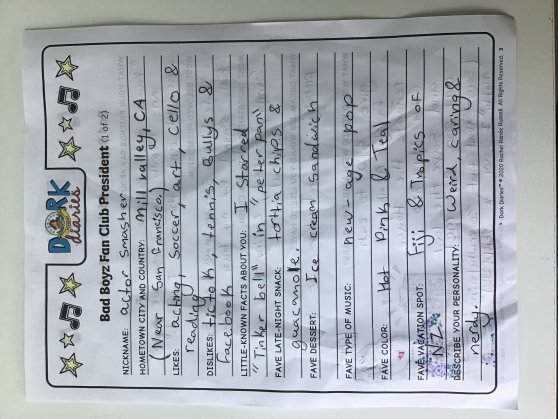 DORK
diaries
Bad Boyz Fan Club President (1 of 2)
NICKNAME: actor smasher
HOMETOWN CITY AND COUNTRY: Mill valley, CA
(Near San francisco.)
LIKES: acting, soccer, art cello &
reading
DISLIKES: tictok, tennis, Bullys &
facebook
LITTLE-KNOWN FACTS ABOUT YOU: I starred
"Tinker bell" in "peter pan"
FAVE LATE-NIGHT SNACK: tortia chips &
guacamole.
FAVE DESSERT: Ice cream sandwich
FAVE TYPE OF MUSIC: new-age pop
FAVE COLOR: Hot pink & Teal
FAVE VACATION SPOT: Fiji & Tropics of
NZ.
DESCRIBE YOUR PERSONALITY: Weird, caring &
nerdy.
Dork Diaries™ © 2020 Rachel Renée Russell. All Rights Reserved. 3